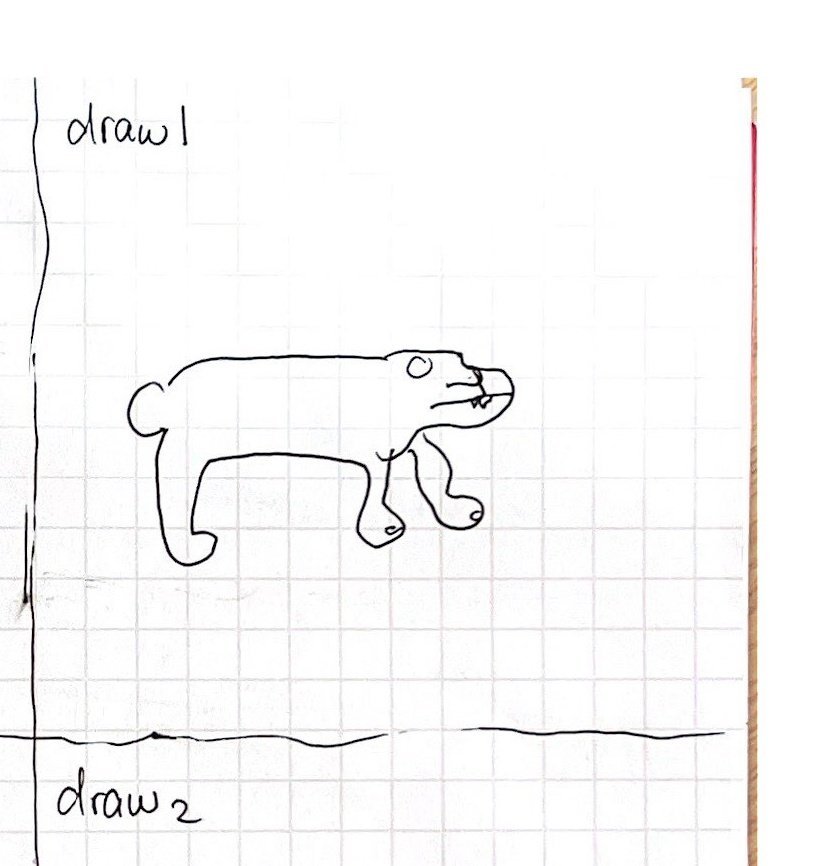 draw 1
draw 2